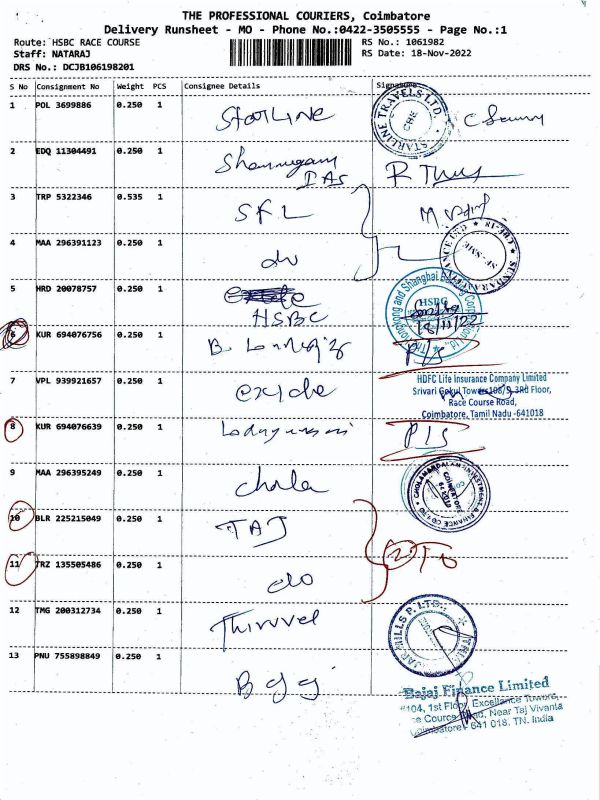 THE PROFESSIONAL COURIERS, Coimbatore
Delivery Runsheet - MO - Phone No.:0422-3505555 - Page No.:1
Route: HSBC RACE COURSE RS No.: 1061982
Staff: NATARAJ RS Date: 18-Nov-2022
DRS No.: DCJB106198201
S No Consignment No Weight PCS Consignee Details Signature
1 POL 3699886 0.250 1 StarLINE STARLINE TRAVELS LTD. CBE
2 EDQ 11304491 0.250 1 Shanmugam IAS
3 TRP 5322346 0.535 1 SFL
4 MAA 296391123 0.250 1 do
5 HRD 20078757 0.250 1 HSBC HSBC
6 KUR 694076756 0.250 1 B. P/S
7 VPL 939921657 0.250 1 exide
HDFC Life Insurance Company Limited
Srivari Gokul Tower 108/ 3Rd Floor,
Race Course Road,
Coimbatore, Tamil Nadu -641018
8 KUR 694076639 0.250 1 P/S
9 MAA 296395249 0.250 1 chola CHOLAMANDALAM INVESTMENT & FINANCE CO LTD
10 BLR 225215049 0.250 1 TAJ
11 TRZ 135505486 0.250 1 do
12 TMG 200312734 0.250 1 Thiruvel MILLS P. LTD.
13 PNU 755898849 0.250 1
Bajaj Finance Limited
#104, 1st Floor, Excellance Towers,
Race Course Road, Near Taj Vivanta
Coimbatore - 641 018. TN. India